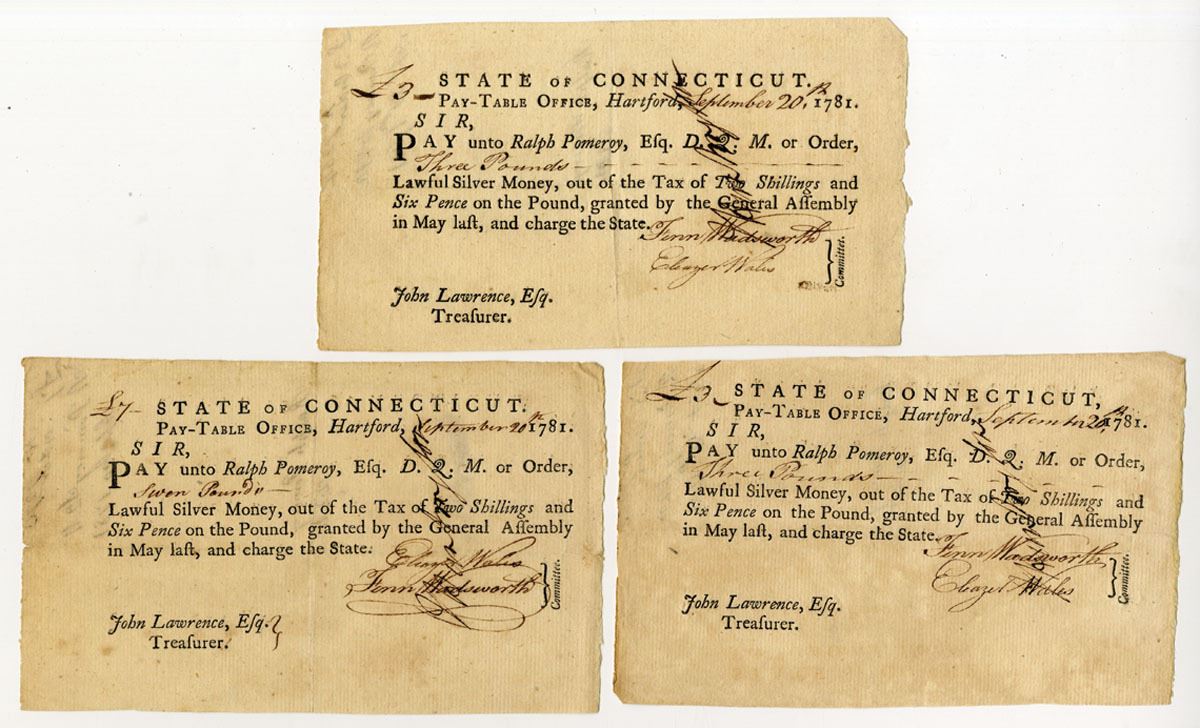 £3 — STATE OF CONNECTICUT.
PAY-TABLE OFFICE, Hartford, September 20,th 1781.
SIR,
PAY unto Ralph Pomeroy, Esq. D. Q. M. or Order,
Three Pounds — — — — — — —
Lawful Silver Money, out of the Tax of Two Shillings and
Six Pence on the Pound, granted by the General Aſſembly
in May laſt, and charge the State.
Fenn Wadsworth
Eleazer Wales
Committee.
John Lawrence, Eſq.
Treaſurer.
£7— STATE OF CONNECTICUT.
PAY-TABLE OFFICE, Hartford, September 20th 1781.
SIR,
PAY unto Ralph Pomeroy, Esq. D. Q. M. or Order,
Seven Pounds —
Lawful Silver Money, out of the Tax of Two Shillings and
Six Pence on the Pound, granted by the General Aſſembly
in May laſt, and charge the State.
Eleazer Wales
Fenn Wadsworth
Committee.
John Lawrence, Eſq.
Treaſurer.
£3 — STATE OF CONNECTICUT,
PAY-TABLE OFFICE, Hartford, September 20,th 1781.
SIR,
PAY unto Ralph Pomeroy, Esq. D. Q. M. or Order,
Three Pounds — — — — — —
Lawful Silver Money, out of the Tax of Two Shillings and
Six Pence on the Pound, granted by the General Aſſembly
in May laſt, and charge the State.
Fenn Wadsworth
Eleazer Wales
Committee.
John Lawrence, Eſq.
Treaſurer.